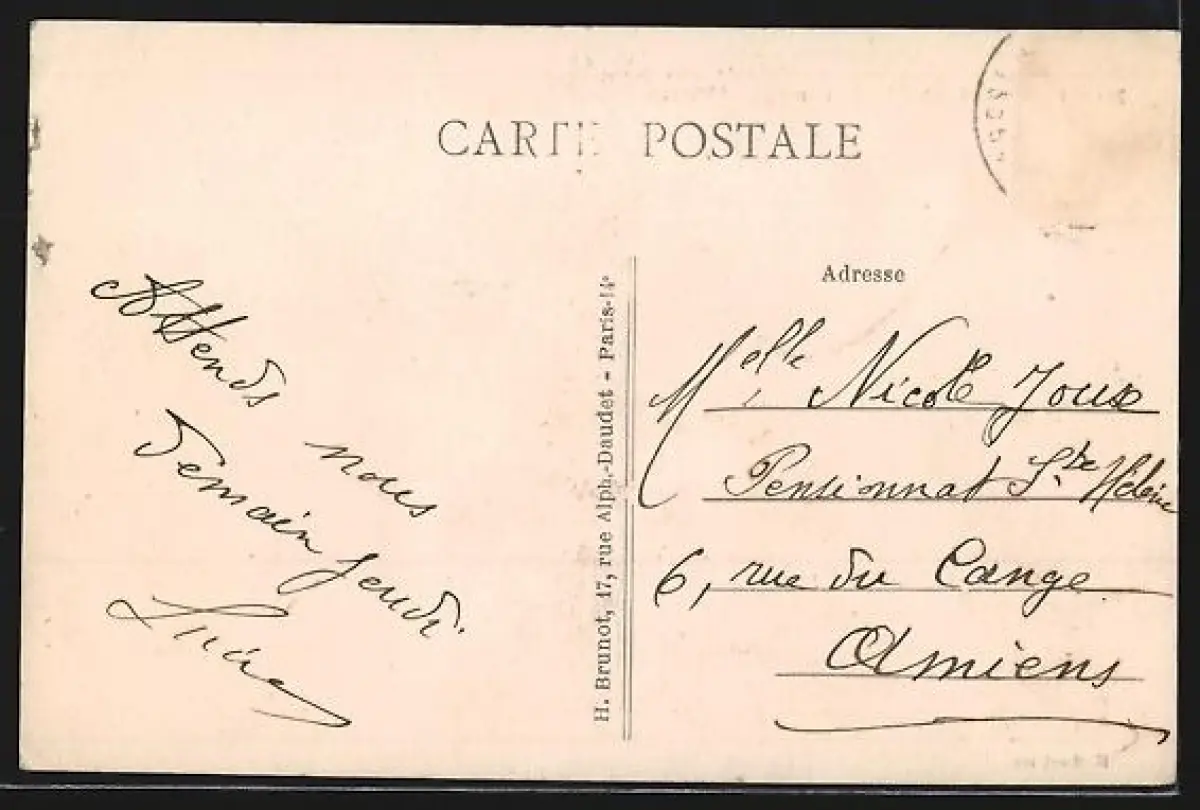 CARTE POSTALE
Adresse
Attends nous
demain jeudi
H. Brunot, 17, rue Alph.-Daudet - Paris-14e
Melle Nicole Joux
Pensionnat Ste Hélène
6, rue du Cange
Amiens